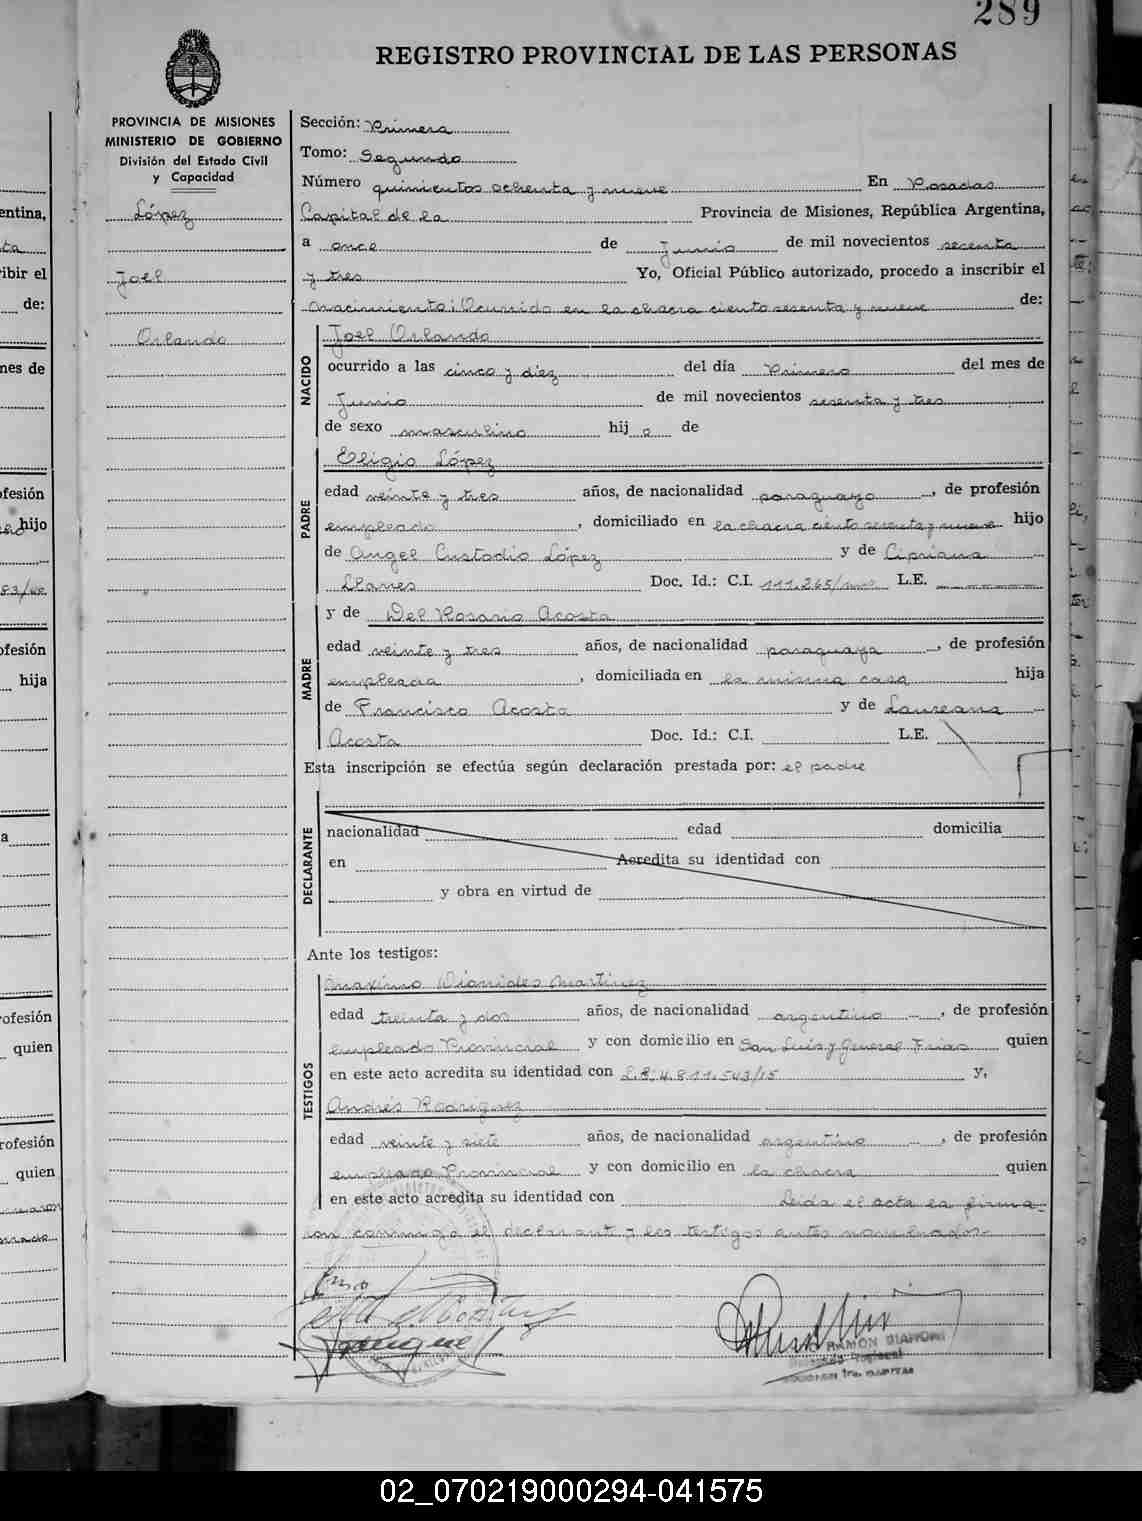 289
REGISTRO PROVINCIAL DE LAS PERSONAS
PROVINCIA DE MISIONES
MINISTERIO DE GOBIERNO
División del Estado Civil
y Capacidad
López
Joel
Orlando
Sección: Primera
Tomo: Segundo
Número quinientos ochenta y nueve En Posadas
Capital de la Provincia de Misiones, República Argentina,
a once de Junio de mil novecientos secenta
y tres Yo, Oficial Público autorizado, procedo a inscribir el
nacimiento: Ocurrido en la chacra ciento sesenta y nueve de:
NACIDO
Joel Orlando
ocurrido a las cinco y diez del día Primero del mes de
Junio de mil novecientos sesenta y tres
de sexo masculino hijo de
Eligio López
PADRE
edad veinte y tres años, de nacionalidad paraguayo, de profesión
empleado, domiciliado en la chacra ciento sesenta y nueve hijo
de Angel Custodio López y de Cipriana
Llanes Doc. Id.: C.I. 111.265/ L.E.
y de Del Rosario Acosta
MADRE
edad veinte y tres años, de nacionalidad paraguaya, de profesión
empleada, domiciliada en la misma casa hija
de Francisco Acosta y de Laureana
Acosta Doc. Id.: C.I. L.E.
Esta inscripción se efectúa según declaración prestada por: el padre
DECLARANTE
nacionalidad edad domicilia
en Acredita su identidad con
y obra en virtud de
Ante los testigos:
TESTIGOS
Maximo Dionides Martinez
edad treinta y dos años, de nacionalidad argentino, de profesión
empleado Provincial y con domicilio en San Luis y General Frias quien
en este acto acredita su identidad con L.E. 4.811.543/15 y,
Andrés Rodriguez
edad veinte y siete años, de nacionalidad argentino, de profesión
empleado Provincial y con domicilio en la chacra quien
en este acto acredita su identidad con Leida el acta la firma-
ron conmigo el declarant y los testigos antes nombrados-
RAMON
02_070219000294-041575